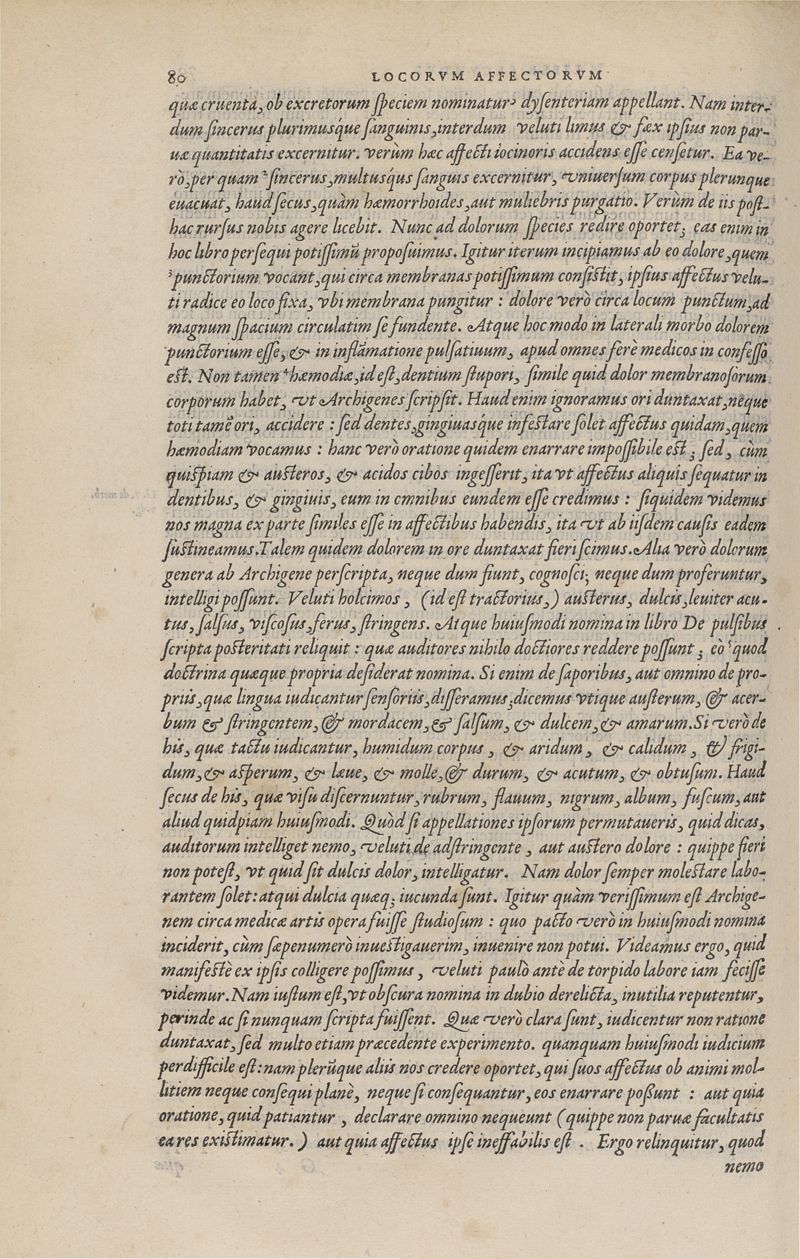 80 LOCORVM AFFECTORVM
quæ cruenta, ob excretorum ſpeciem nominatur, dyſenteriam appellant. Nam inter-
dum ſincerus plurimusque ſanguinis, interdum veluti limus & fæx ipſius non par-
uæ quantitatis excernitur. verùm hæc affecti iocinoris accidens eſſe cenſetur. Ea ve-
rò, per quam ²ſincerus, multusqus ſanguis excernitur, vniuerſum corpus plerunque
euacuat, haud ſecus, quàm hæmorrhoides, aut muliebris purgatio. Verùm de iis poſt-
hac rurſus nobis agere licebit. Nunc ad dolorum ſpecies redire oportet, eas enim in
hoc libro perſequi potiſſimũ propoſuimus. Igitur iterum incipiamus ab eo dolore, quem
³punctorium vocant, qui circa membranas potiſſimum conſiſtit, ipſius affectus velu-
ti radice eo loco fixa, vbi membrana pungitur : dolore verò circa locum punctum, ad
magnum ſpacium circulatim ſe fundente. Atque hoc modo in laterali morbo dolorem
punctorium eſſe, & in inflãmatione pulſatiuum, apud omnes ferè medicos in confeſſo
eſt. Non tamen ⁴hæmodiæ, id eſt, dentium ſtupori, ſimile quid dolor membranoſorum
corporum habet, vt Archigenes ſcripſit. Haud enim ignoramus ori duntaxat, neque
toti tamẽ ori, accidere : ſed dentes, gingiuasque infeſtare ſolet affectus quidam, quem
hæmodiam vocamus : hanc verò oratione quidem enarrare impoſſibile eſt ; ſed, cùm
quiſpiam & auſteros, & acidos cibos ingeſſerit, ita vt affectus aliquis ſequatur in
dentibus, & gingiuis, eum in omnibus eundem eſſe credimus : ſiquidem videmus
nos magna ex parte ſimiles eſſe in affectibus habendis, ita vt ab iiſdem cauſis eadem
ſuſtineamus. Talem quidem dolorem in ore duntaxat fieri ſcimus. Alia verò dolorum
genera ab Archigene perſcripta, neque dum fiunt, cognoſci, neque dum proferuntur,
intelligi poſſunt. Veluti holcimos, (id eſt tractorius,) auſterus, dulcis, leuiter acu-
tus, ſalſus, viſcoſus, ferus, ſtringens. Atque huiuſmodi nomina in libro De pulſibus
ſcripta poſteritati reliquit : quæ auditores nihilo doctiores reddere poſſunt ; eò ⁵quod
doctrina quæque propria deſiderat nomina. Si enim de ſaporibus, aut omnino de pro-
priis, quæ lingua iudicantur ſenſoriis, differamus, dicemus vtique auſterum, & acer-
bum & ſtringentem, & mordacem, & ſalſum, & dulcem, & amarum. Si verò de
his, quæ tactu iudicantur, humidum corpus, & aridum, & calidum, & frigi-
dum, & aſperum, & læue, & molle, & durum, & acutum, & obtuſum. Haud
ſecus de his, quæ viſu diſcernuntur, rubrum, flauum, nigrum, album, fuſcum, aut
aliud quidpiam huiuſmodi. Quòd ſi appellationes ipſorum permutaueris, quid dicas,
auditorum intelliget nemo, veluti de adſtringente, aut auſtero dolore : quippe fieri
non poteſt, vt quid ſit dulcis dolor, intelligatur. Nam dolor ſemper moleſtare labo-
rantem ſolet: atqui dulcia quæq; iucunda ſunt. Igitur quàm veriſſimum eſt Archige-
nem circa medicæ artis opera fuiſſe ſtudioſum : quo pacto verò in huiuſmodi nomina
inciderit, cùm ſæpenumerò inueſtigauerim, inuenire non potui. Videamus ergo, quid
manifeſtè ex ipſis colligere poſſimus, veluti paulò antè de torpido labore iam feciſſe
videmur. Nam iuſtum eſt, vt obſcura nomina in dubio derelicta, inutilia reputentur,
perinde ac ſi nunquam ſcripta fuiſſent. Quæ verò clara ſunt, iudicentur non ratione
duntaxat, ſed multo etiam præcedente experimento. quanquam huiuſmodi iudicium
perdifficile eſt: nam plerũque aliis nos credere oportet, qui ſuos affectus ob animi mol-
litiem neque conſequi planè, neque ſi conſequantur, eos enarrare poſſunt : aut quia
oratione, quid patiantur, declarare omnino nequeunt (quippe non paruæ facultatis
ea res exiſtimatur.) aut quia affectus ipſe ineffabilis eſt. Ergo relinquitur, quod
nemo